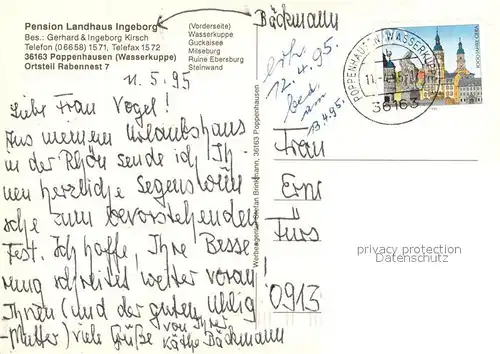 Pension Landhaus Ingeborg
Bes.: Gerhard & Ingeborg Kirsch
Telefon (06658) 1571, Telefax 1572
36163 Poppenhausen (Wasserkuppe)
Ortsteil Rabennest 7
(Vorderseite)
Wasserkuppe
Guckaisee
Milseburg
Ruine Ebersburg
Steinwand
Bäckmann
11.5.95
Liebe Frau Vogel!
Aus meinem Urlaubshaus
in der Rhön sende ich Ih-
nen herzliche Segenswün
sche zum bevorstehenden
Fest. Ich hoffe, Ihre Besse
rung schreitet weiter voran!
Ihnen (und der guten
Mutter) viele Grüße von Ihrer
Käthe Bäckmann
Werbeagentur Stefan Brinkmann, 36163 Poppenhausen
12.4.95.
am
13.4.95.
POPPENHAUSEN, WASSERKUPPE
36163
1000 JAHRE GERA
Frau
Erns
Fürs
0913
privacy protection
Datenschutz